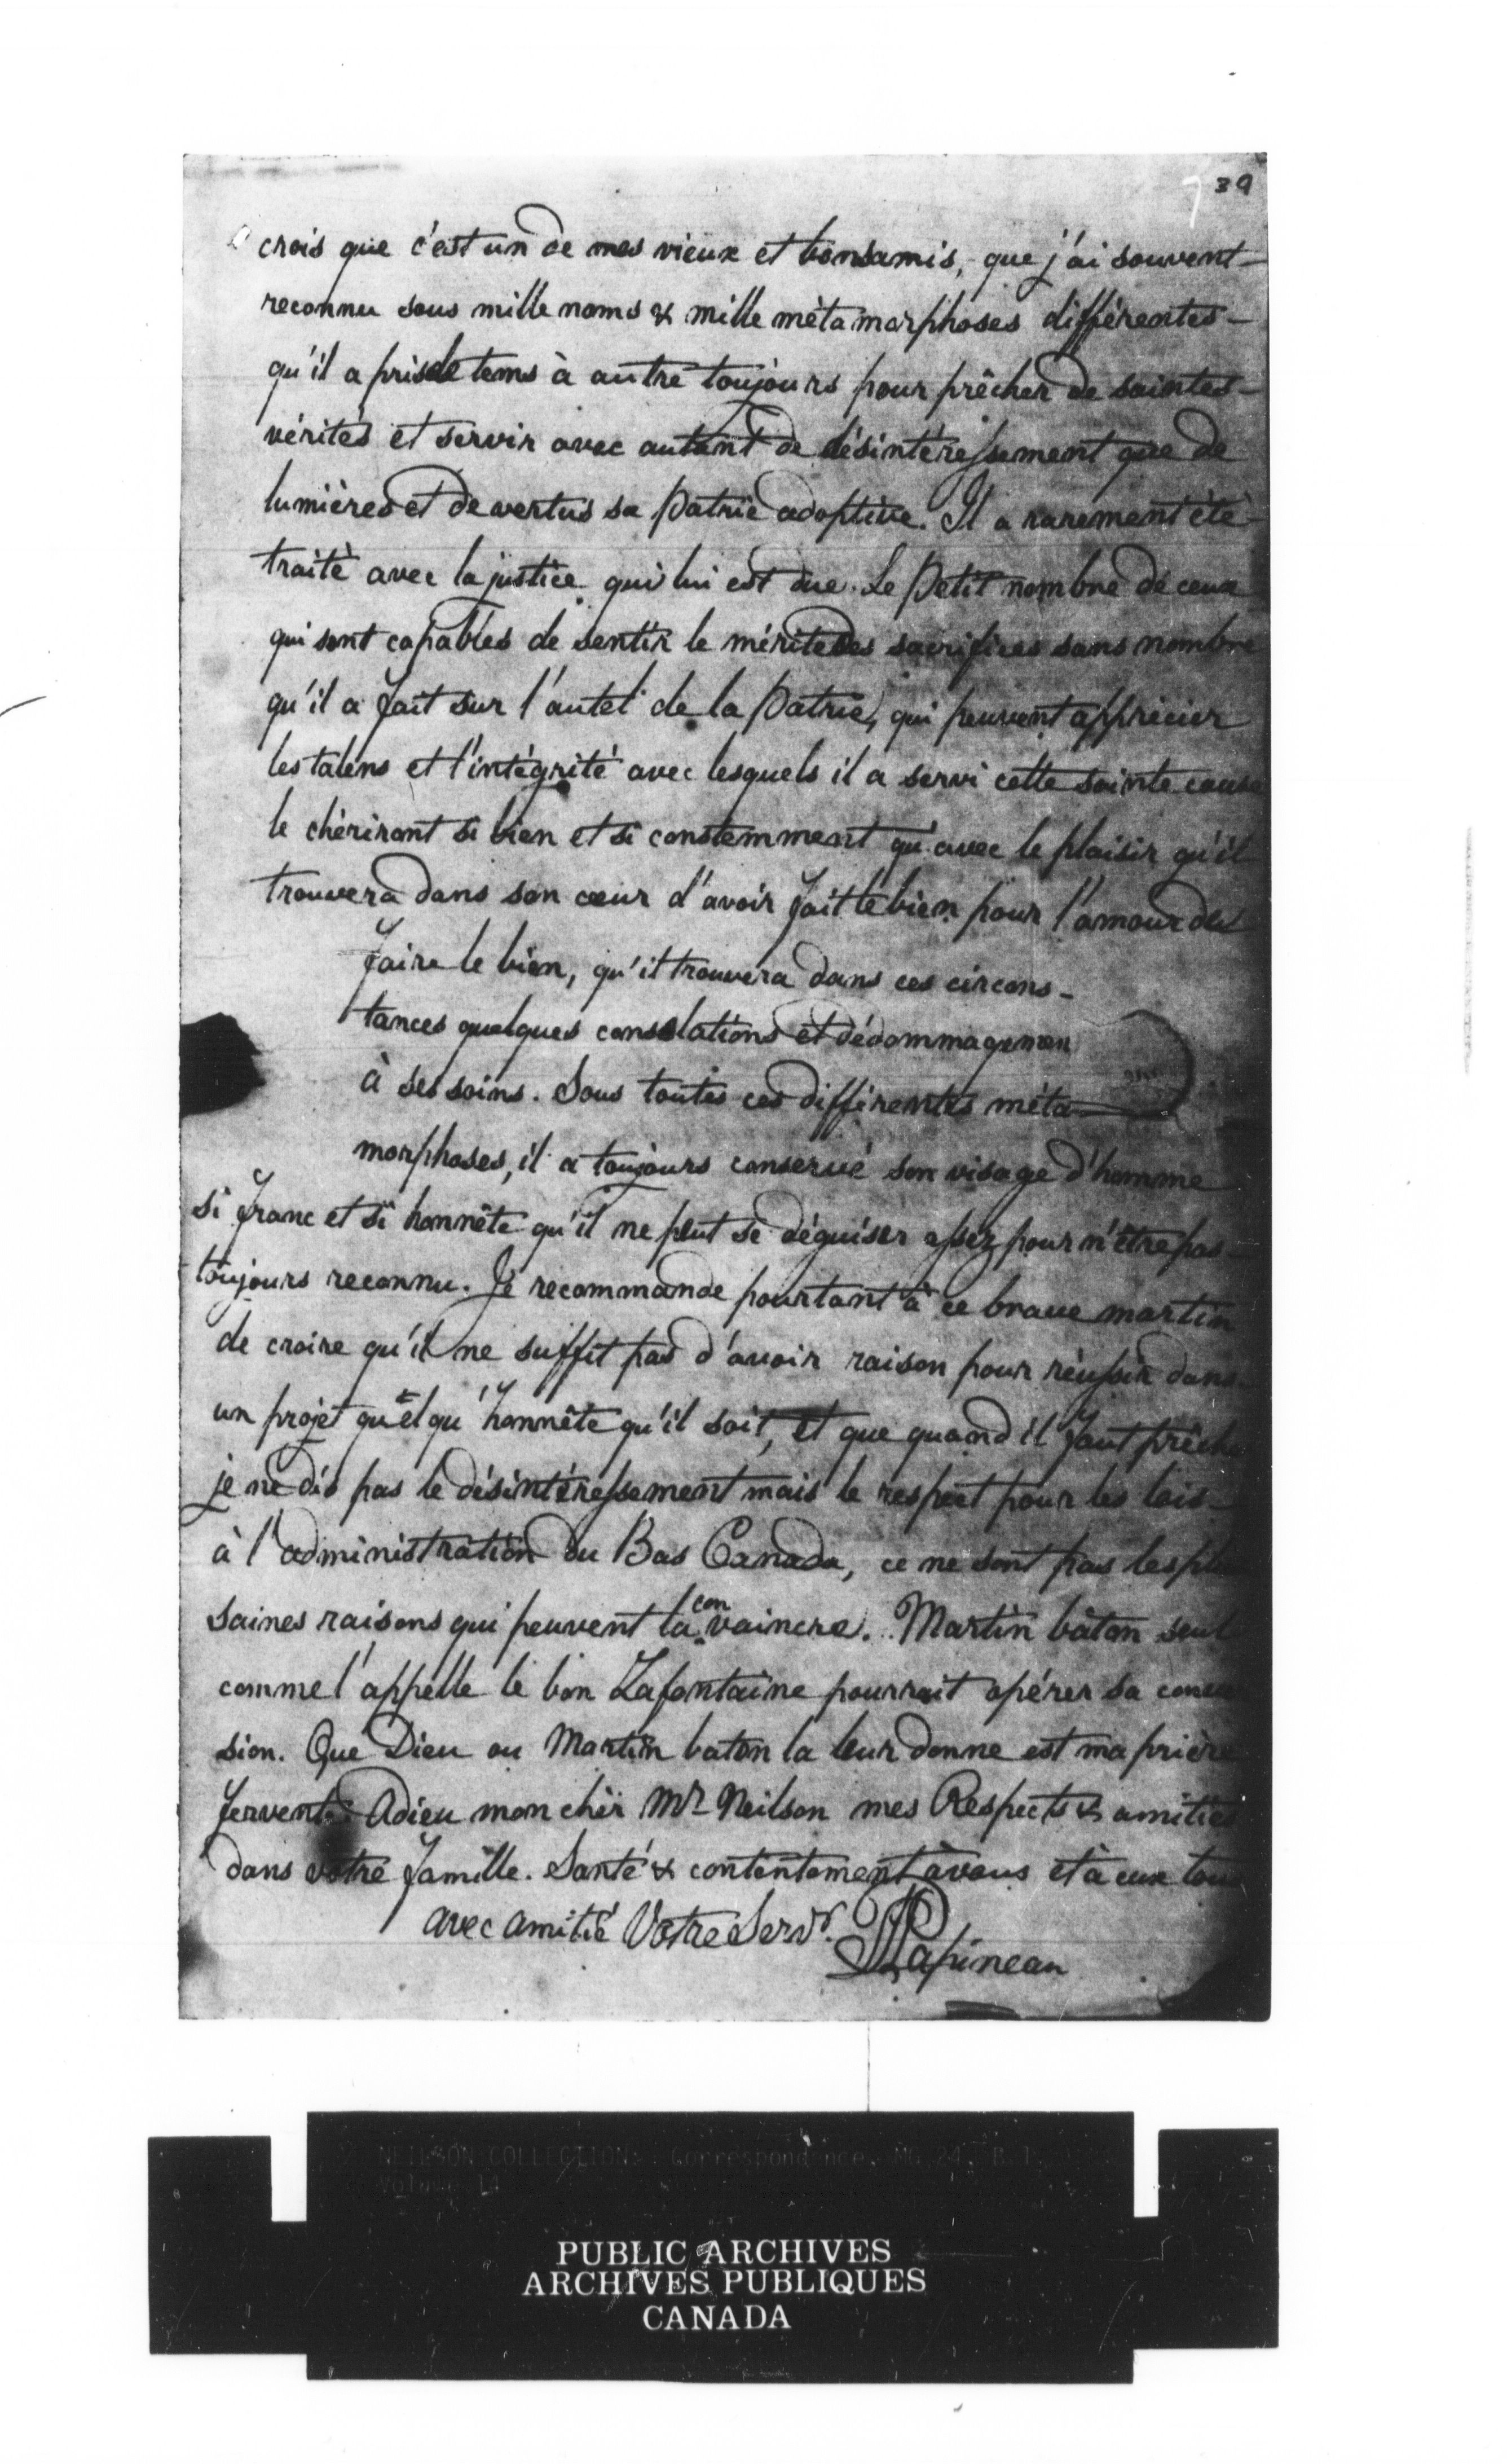 39
crois que c'est un de mes vieux et bons amis, que j'ai souvent
reconnu sous mille noms & mille métamorphoses différentes
qu'il a pris de tems à autre toujours pour prêcher de saintes
vérités et servir avec autant de désintéressement que de
lumières et de vertus sa Patrie adoptive. Il a rarement été
traité avec la justice qui lui est due. Le Petit nombre de ceux
qui sont capables de sentir le mérite des sacrifices sans nombre
qu'il a fait sur l'autel de la Patrie, qui peuvent apprécier
les talens et l'intégrité avec lesquels il a servi cette sainte cause
le chériront si bien et si constemment qu'avec le plaisir qu'il
trouvera dans son cœur d'avoir fait le bien pour l'amour de
faire le bien, qu'il trouvera dans ces circons-
tances quelques consolations et dédommagemen
à ses soins. Sous toutes ces différentes méta-
morphoses, il a toujours conservé son visage d'homme
si franc et si honnête qu'il ne peut se déguiser assez pour n'être pas
toujours reconnu. Je recommande pourtant à ce brave martin
de croire qu'il ne suffit pas d'avoir raison pour réussir dans
un projet quelqu'honnête qu'il soit, et que quand il faut prêche
je ne dis pas le désintéressement mais le respect pour les lois
à l'administration du Bas Canada, ce ne sont pas les plu
saines raisons qui peuvent la convaincre. Martin bâton seul
comme l'appelle le bon Lafontaine pourrait opérer sa conver
sion. Que Dieu ou Martin baton la leur donne est ma prière
fervente. Adieu mon cher Mr Neilson mes Respects & amitiés
dans votre famille. Santé & contentement à vous et à eux tou
avec amitié Votre Servr.
LJPapineau
NEILSON COLLECTION: Correspondence. MG 24, B 1,
Volume 14
PUBLIC ARCHIVES
ARCHIVES PUBLIQUES
CANADA